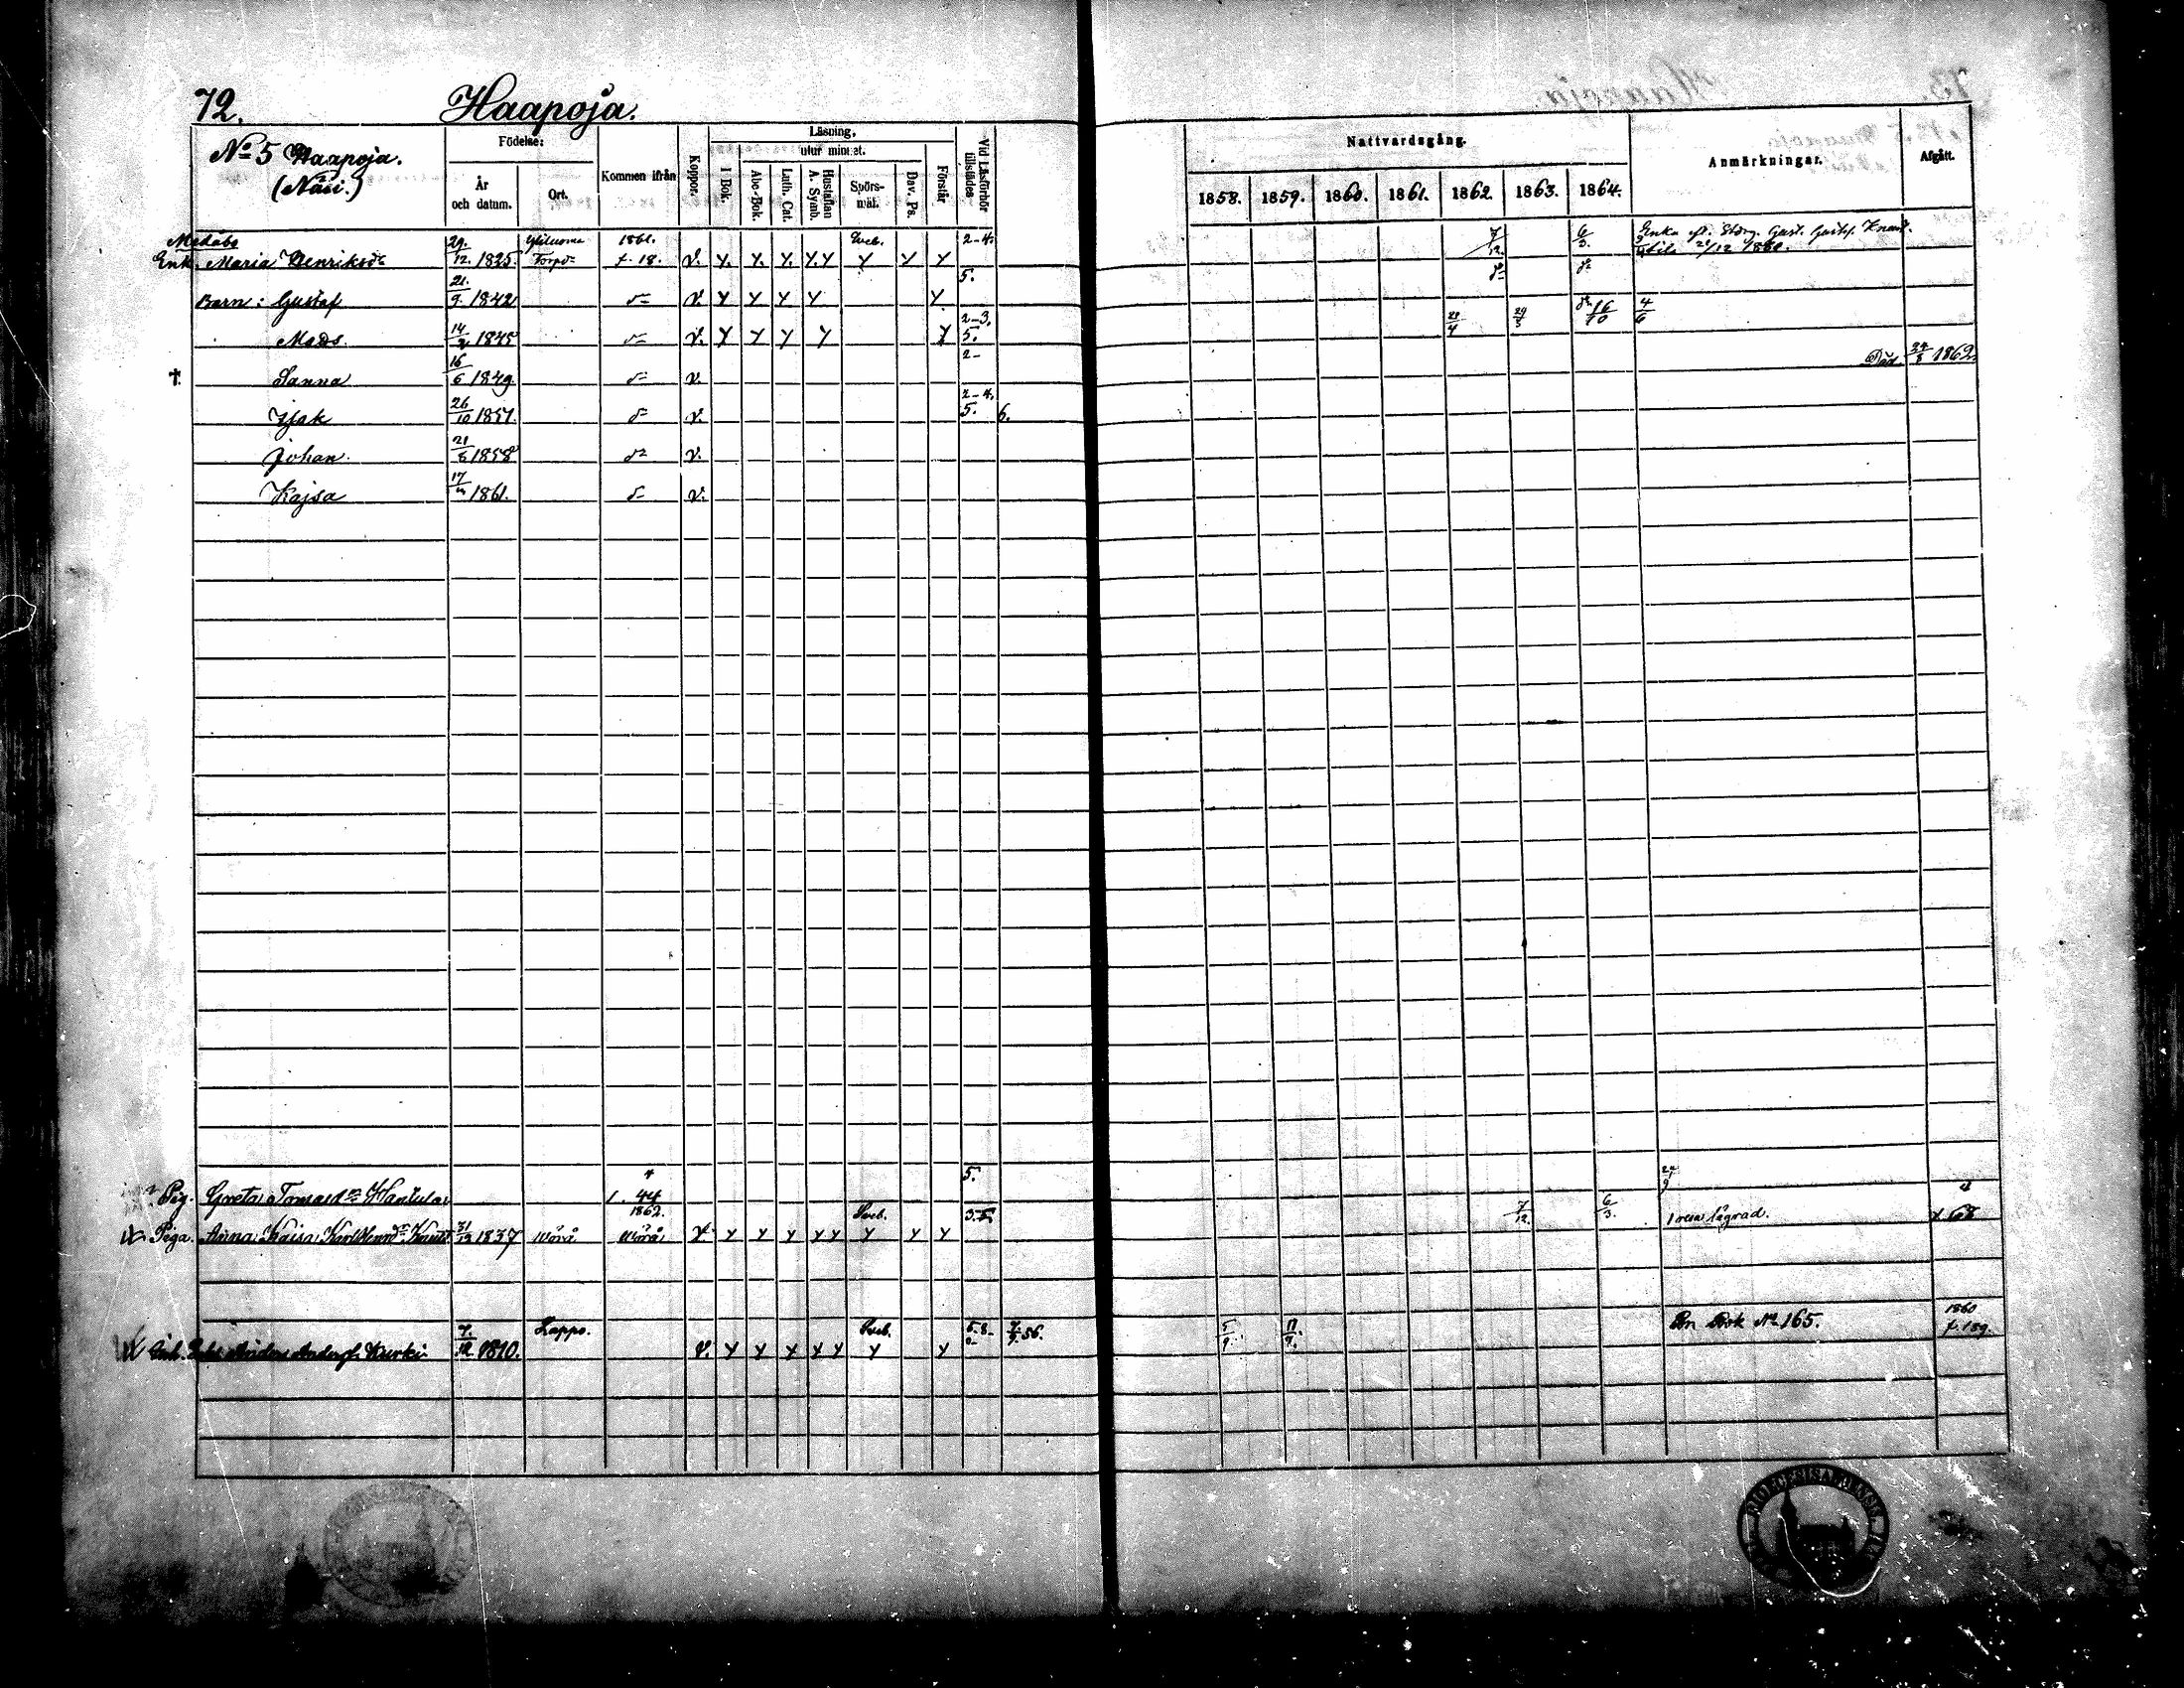 72. Haapoja.
No 5 Haapoja.
(Näsi.)
Födelse:
År och datum.
Ort.
Kommen ifrån
Koppor.
Läsning,
utur minnet.
I Bok.
Abc-Bok.
Luth. Cat.
Hustaflan A. Symb.
Spörs-mål.
Dav. Ps.
Förstår
Vid Läsförhör tillstädes
Nattvardsgång.
1858. 1859. 1860. 1861. 1862. 1863. 1864.
Anmärkningar.
Afgått.
Enk. Maria Henriksdr 29/12 1825. 1861. f. 18. v. y. y. y. y. y Sveb. y y y 2-4. 5. 7/12. 6/3.
Enka eft. Gust. Gustfs.
Barn: Gustaf 21/9 1842 do v. y y y y y do do
Mads 14/2 1845 do v. y y y y y 2-3. 5. 28/4 29/3 16/10 4/6
†. Sanna 16/6 1849. do v. 2- Död. 24/8 1862.
Isak 26/10 1851. do v. 2-4. 5. 6.
Johan 21/5 1858 do v.
Kajsa 17/4 1861. do v.
Pig. Greta Tomasdr Hantula f. 44 5.
Piga. Anna Kaisa 31/12 1837 Wörå 1862. Wörå v. y y y y y Sveb. y y y 7/12. 6/3. 1 resa lägrad.
Anders Andersf. Kurki 7/12 1810. Lappo. v. y y y y y Sveb. y y 7/9 56. 5/9. 11/9. No 165. 1860 f. 189.